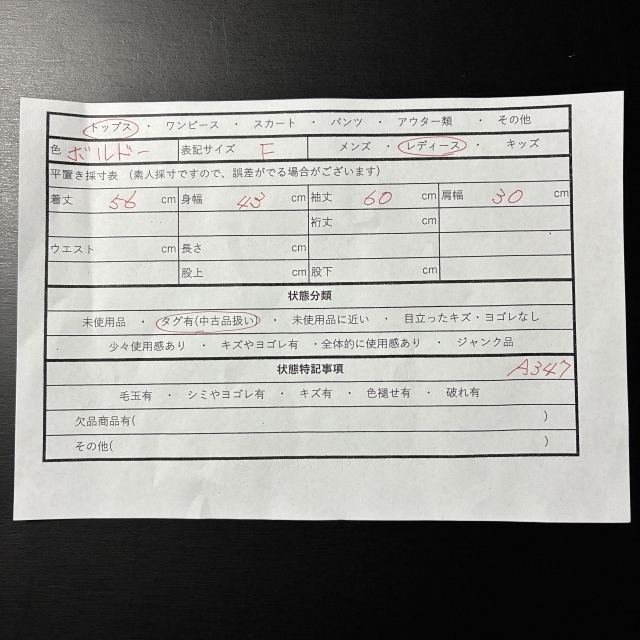 トップス ・ ワンピース ・ スカート ・ パンツ ・ アウター類 ・ その他
色 ボルドー 表記サイズ F メンズ ・ レディース ・ キッズ
平置き採寸表 (素人採寸ですので、誤差がでる場合がございます)
着丈 56 cm 身幅 43 cm 袖丈 60 cm 肩幅 30 cm
裄丈 cm
ウエスト cm 長さ cm
股上 cm 股下 cm
状態分類
未使用品 ・ タグ有(中古品扱い) ・ 未使用品に近い ・ 目立ったキズ・ヨゴレなし
・ 少々使用感あり ・ キズやヨゴレ有 ・全体的に使用感あり ・ ジャンク品
状態特記事項 A347
毛玉有 ・ シミやヨゴレ有 ・ キズ有 ・ 色褪せ有 ・ 破れ有
欠品商品有( )
その他( )